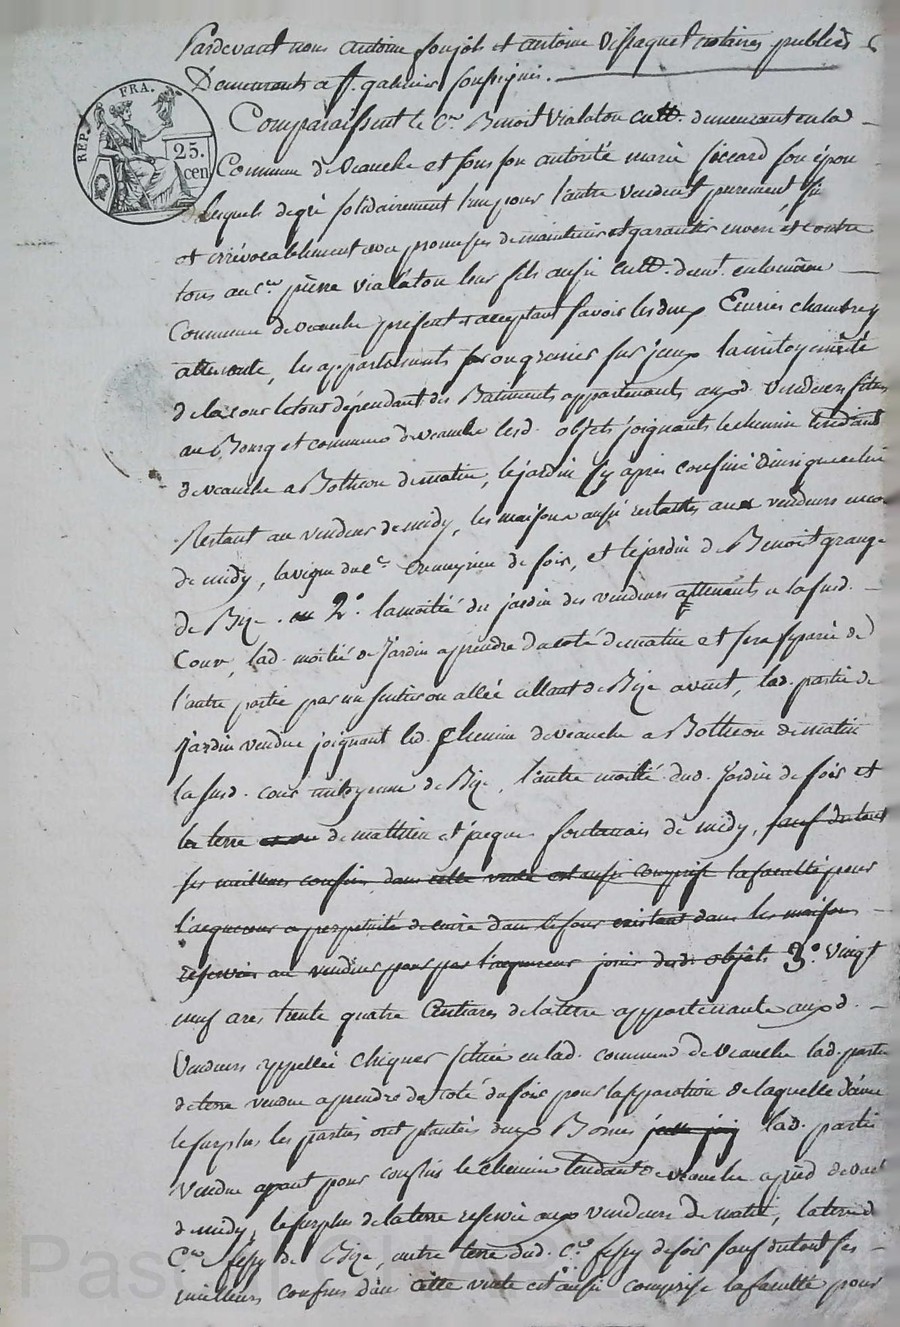 Pardevant nous antoine soujols et antoine vissaguet notaires publics
Demeurants a St. galmier soussignés.
REP. FRA.
25.
cen
Comparaissent le Cen Benoit Vialaton cultr. demeurant en la
Commune de veauche et sous son autorité marie siccard son épou
lequels de gré solidairement l'un pour l'autre vendent purement
et irrévocablement avec promesses de maintenir et garantir envers et contre
tous au Cen pierre vialaton leur fils aussi cultr. demt. en la même
Commune de veauche present et acceptant savoir les deux Ecuries chambre
attenante, les appartements ou greniers sur jceux la mitoyenneté
de la cour le tout dépendant des Batiments appartenants auxd. vendeurs situes
au Bourg et commune de veauche lesd. objets joignants le chemin tendant
de veauche a Botheon de matin, le jardin cy après confiné ainsi que celui
Restant au vendeur de midy, les maisons aussi restantes aux vendeurs encore
de midy, la vigne du Cen de soir, et le jardin de Benoit grange
de Bize. 2°. la moitié du jardin des vendeurs attenants a la susd.
Cour, lad. moitié de jardin a prendre du coté de matin et sera separée de
l'autre partie par un sentier ou allée allant de Bize a vent, lad. partie de
jardin vendue joignant led. chemin de veauche a Botheon de matin
la susd. cour mitoyenne de Bize, l'autre moitié dud. jardin de soir et
la terre de mathieu et jacques fontanais de midy, sauf du tout
ses meilleurs confins, dans cette vente est aussi comprise la faculté pour
l'acquereur a perpetuité de cuire dans le four existant dans les maisons
reservées au vendeur pour par l'acquereur jouir desd. objets 3°. vingt
neuf ares trente quatre Centiares de la terre appartenante auxd.
vendeurs appellée Chiquer située en lad. commune de veauche lad. partie
de terre vendue a prendre du coté du soir pour la separation de laquelle d'avec
le surplus les parties ont plantés deux Bornes lad. partie
vendue ayant pour confins le chemin tendant de veauche a
de midy, le surplus de la terre reservée aux vendeurs de matin, la terre du
Cen fessy de Bize, autre terre dud. Cen fessy de soir sauf du tout ses
meilleurs confins dans cette vente est aussi comprise la faculté pour